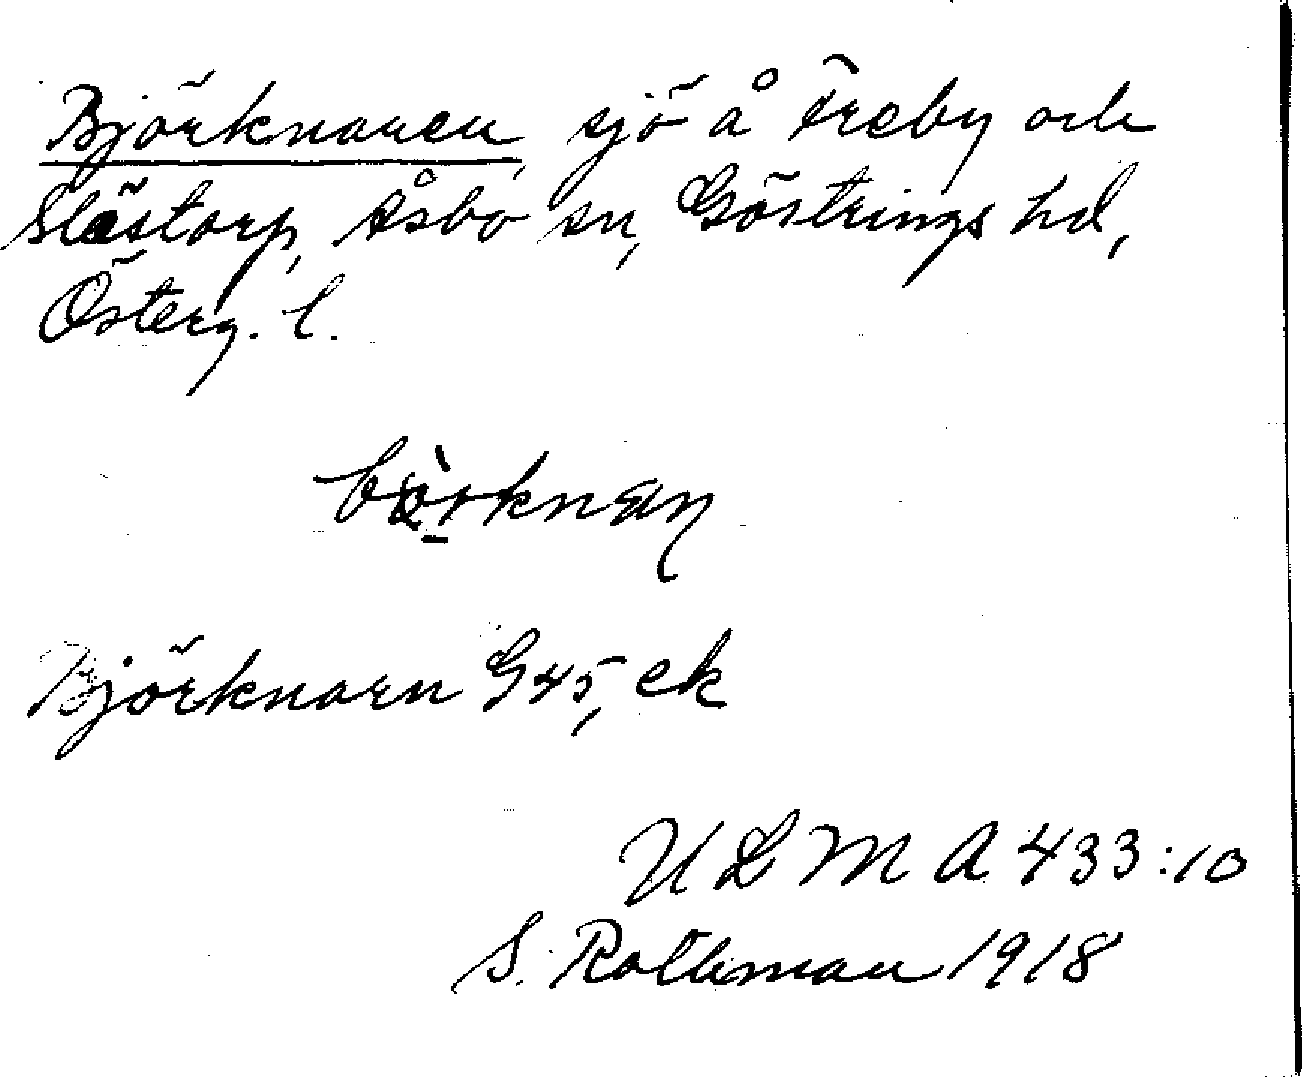 Björknaren, sjö å Treby och
Slästorp, Åsbo sn, Göstrings hd,
Österg. l.
Björknarn G45, ek
ULMA 433:10
S. Rothman 1918